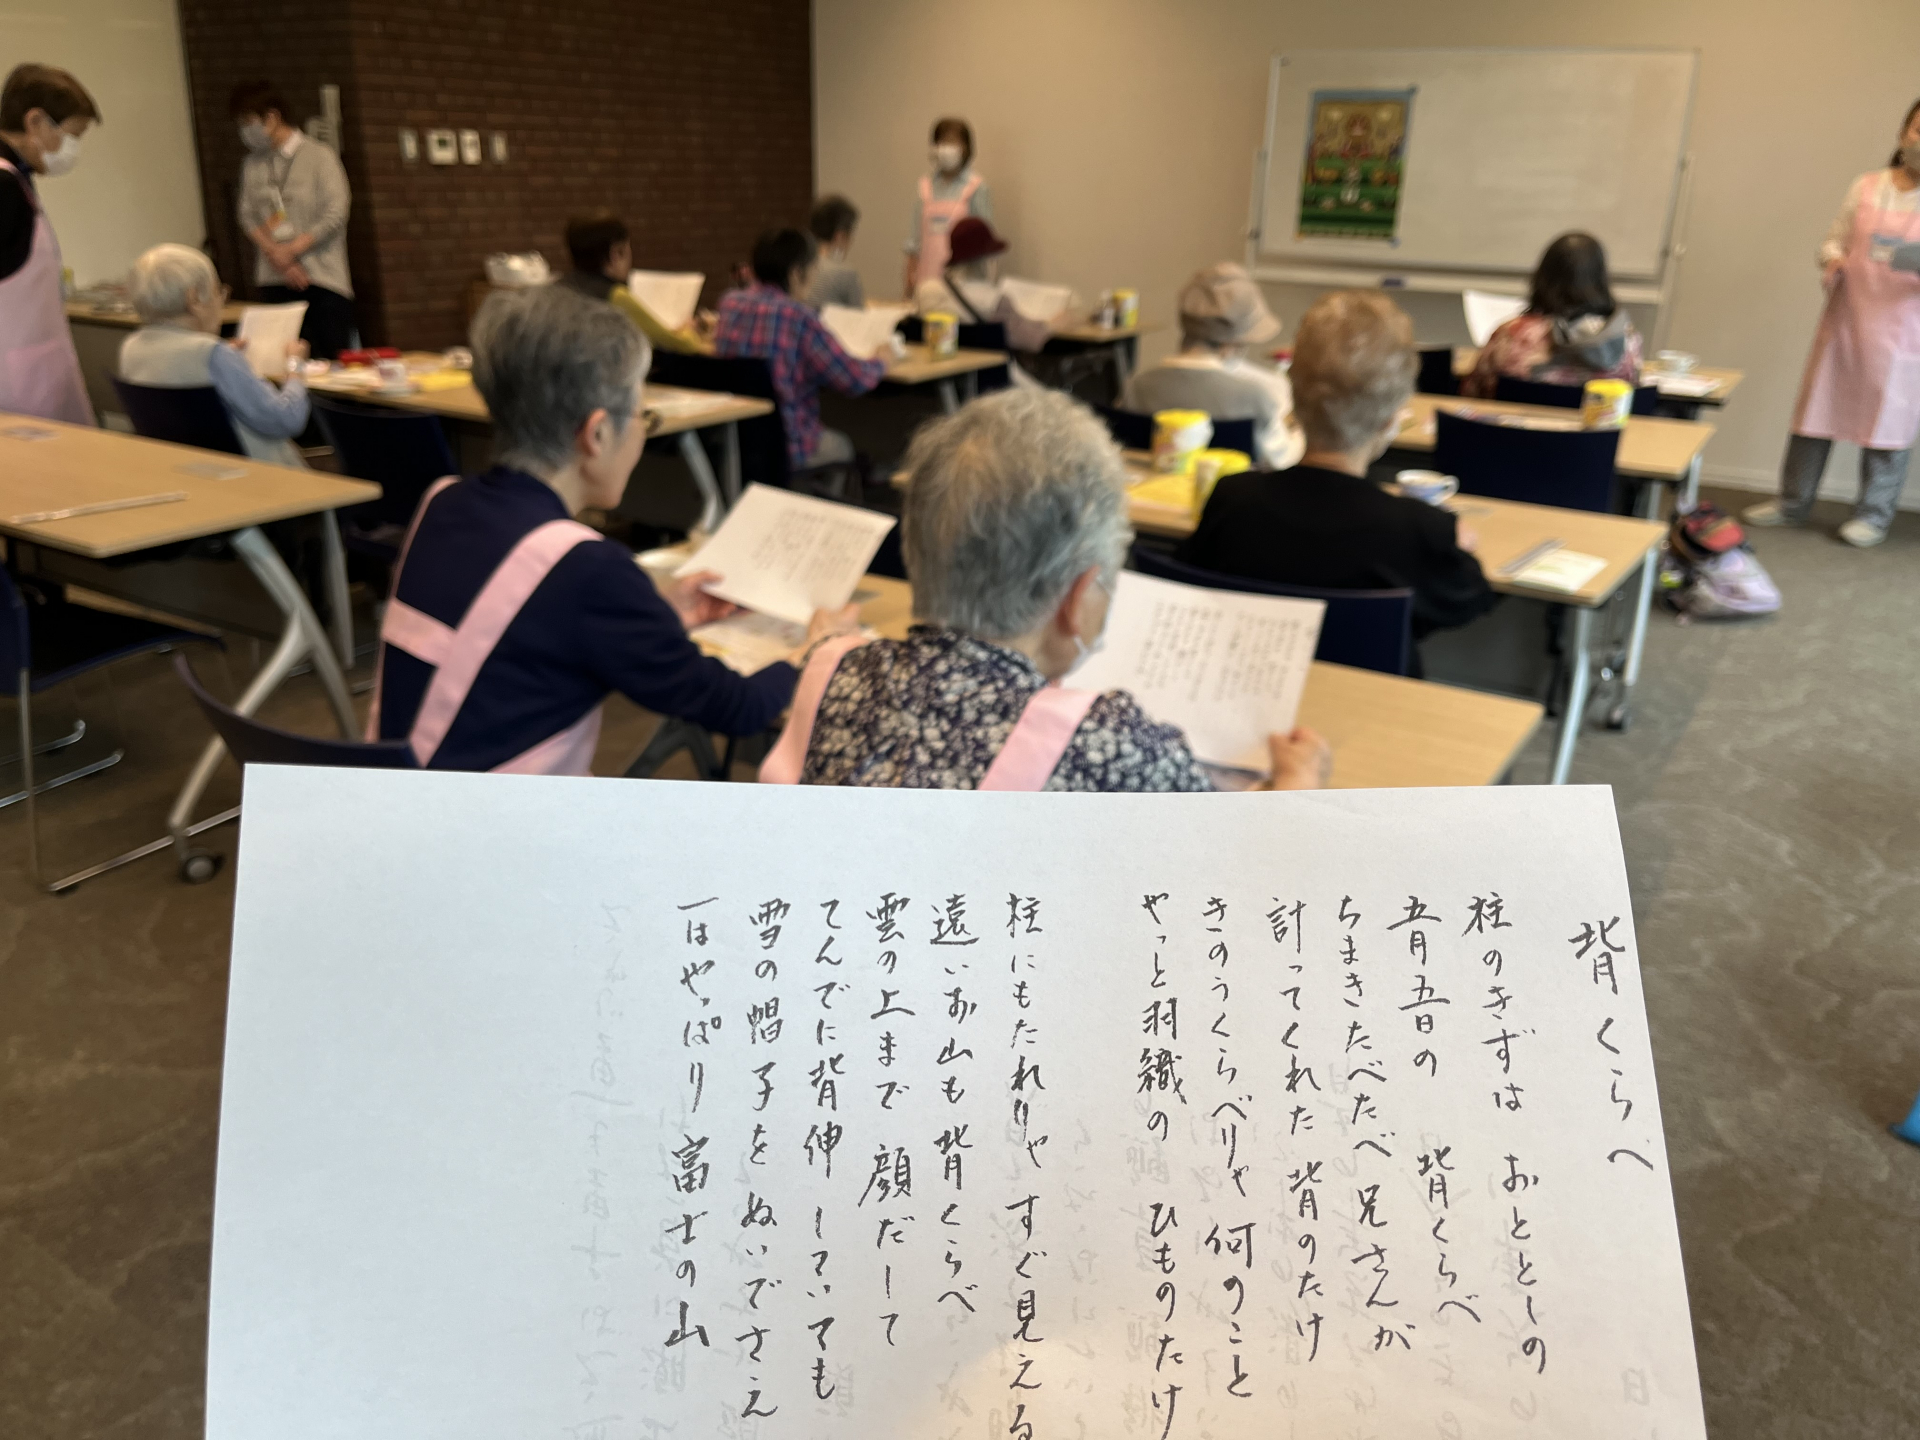 背くらべ
柱のきずは おととしの
五月五日の 背くらべ
ちまきたべたべ兄さんが
計ってくれた 背のたけ
きのうくらべりゃ 何のこと
やっと羽織の ひものたけ
柱にもたれりゃ すぐ見える
遠いお山も 背くらべ
雲の上まで 顔だして
てんでに背伸していても
雪の帽子をぬいでさえ
一はやっぱり 富士の山